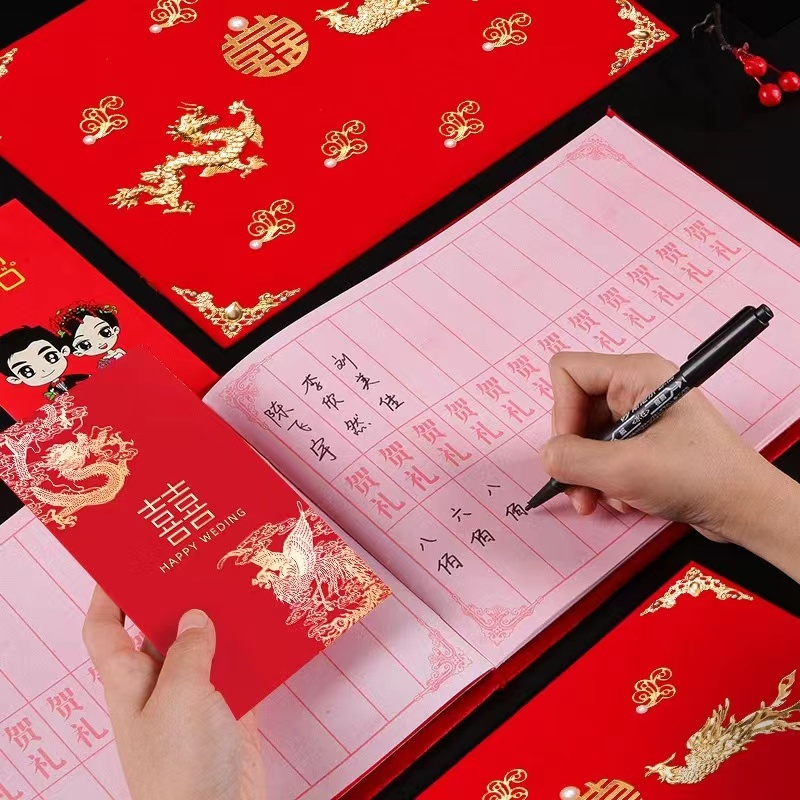 囍
囍
HAPPY WEDING
陈飞宇
贺礼
八佰
李欣然
贺礼
六佰
刘美佳
贺礼
八佰
贺礼
贺礼
贺礼
贺礼
贺礼
贺礼
贺礼
贺礼
贺礼
贺礼
贺礼
贺礼
囍